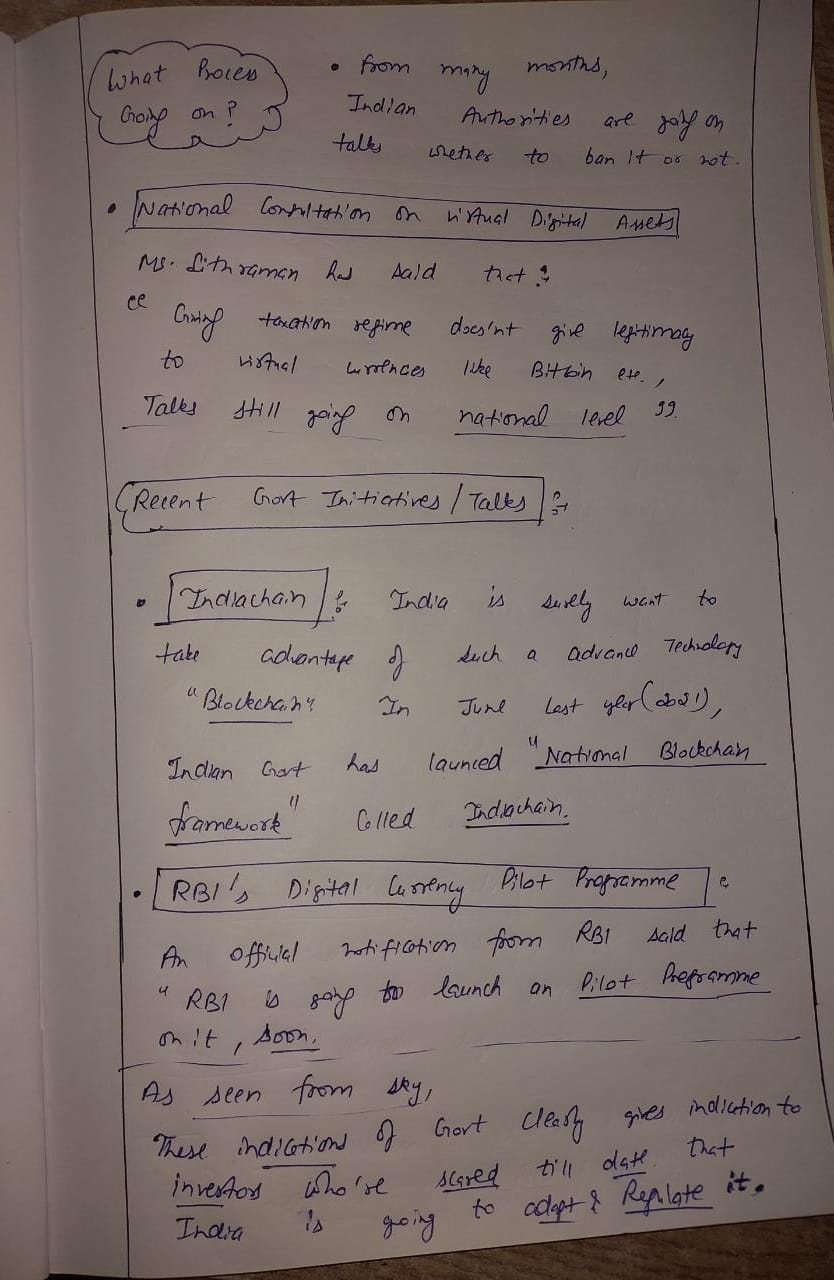 What Process
Going on ?
• from many months,
Indian Authorities are going on
talks wether to ban it or not.
• National Consultation on virtual Digital Assets
Ms. Sithraman has said that :-
" Giving taxation regime does'nt give legitimacy
to virtual currences like Bitcoin etc.,
Talks still going on national level "
Recent Govt Initiatives / Talks :-
• Indiachain :- India is surely want to
take advantage of such a advance Technology
"Blockchain" In June last year (2021),
Indian Govt has launced "National Blockchain
framework" Called Indiachain.
• RBI's Digital Currency Pilot Programme :
An official notification from RBI said that
" RBI is going to launch an Pilot Programme
on it, soon.
As seen from sky,
These indications of Govt clearly gives indiction to
investors who're scared till date that
India is going to adapt & Regulate it.